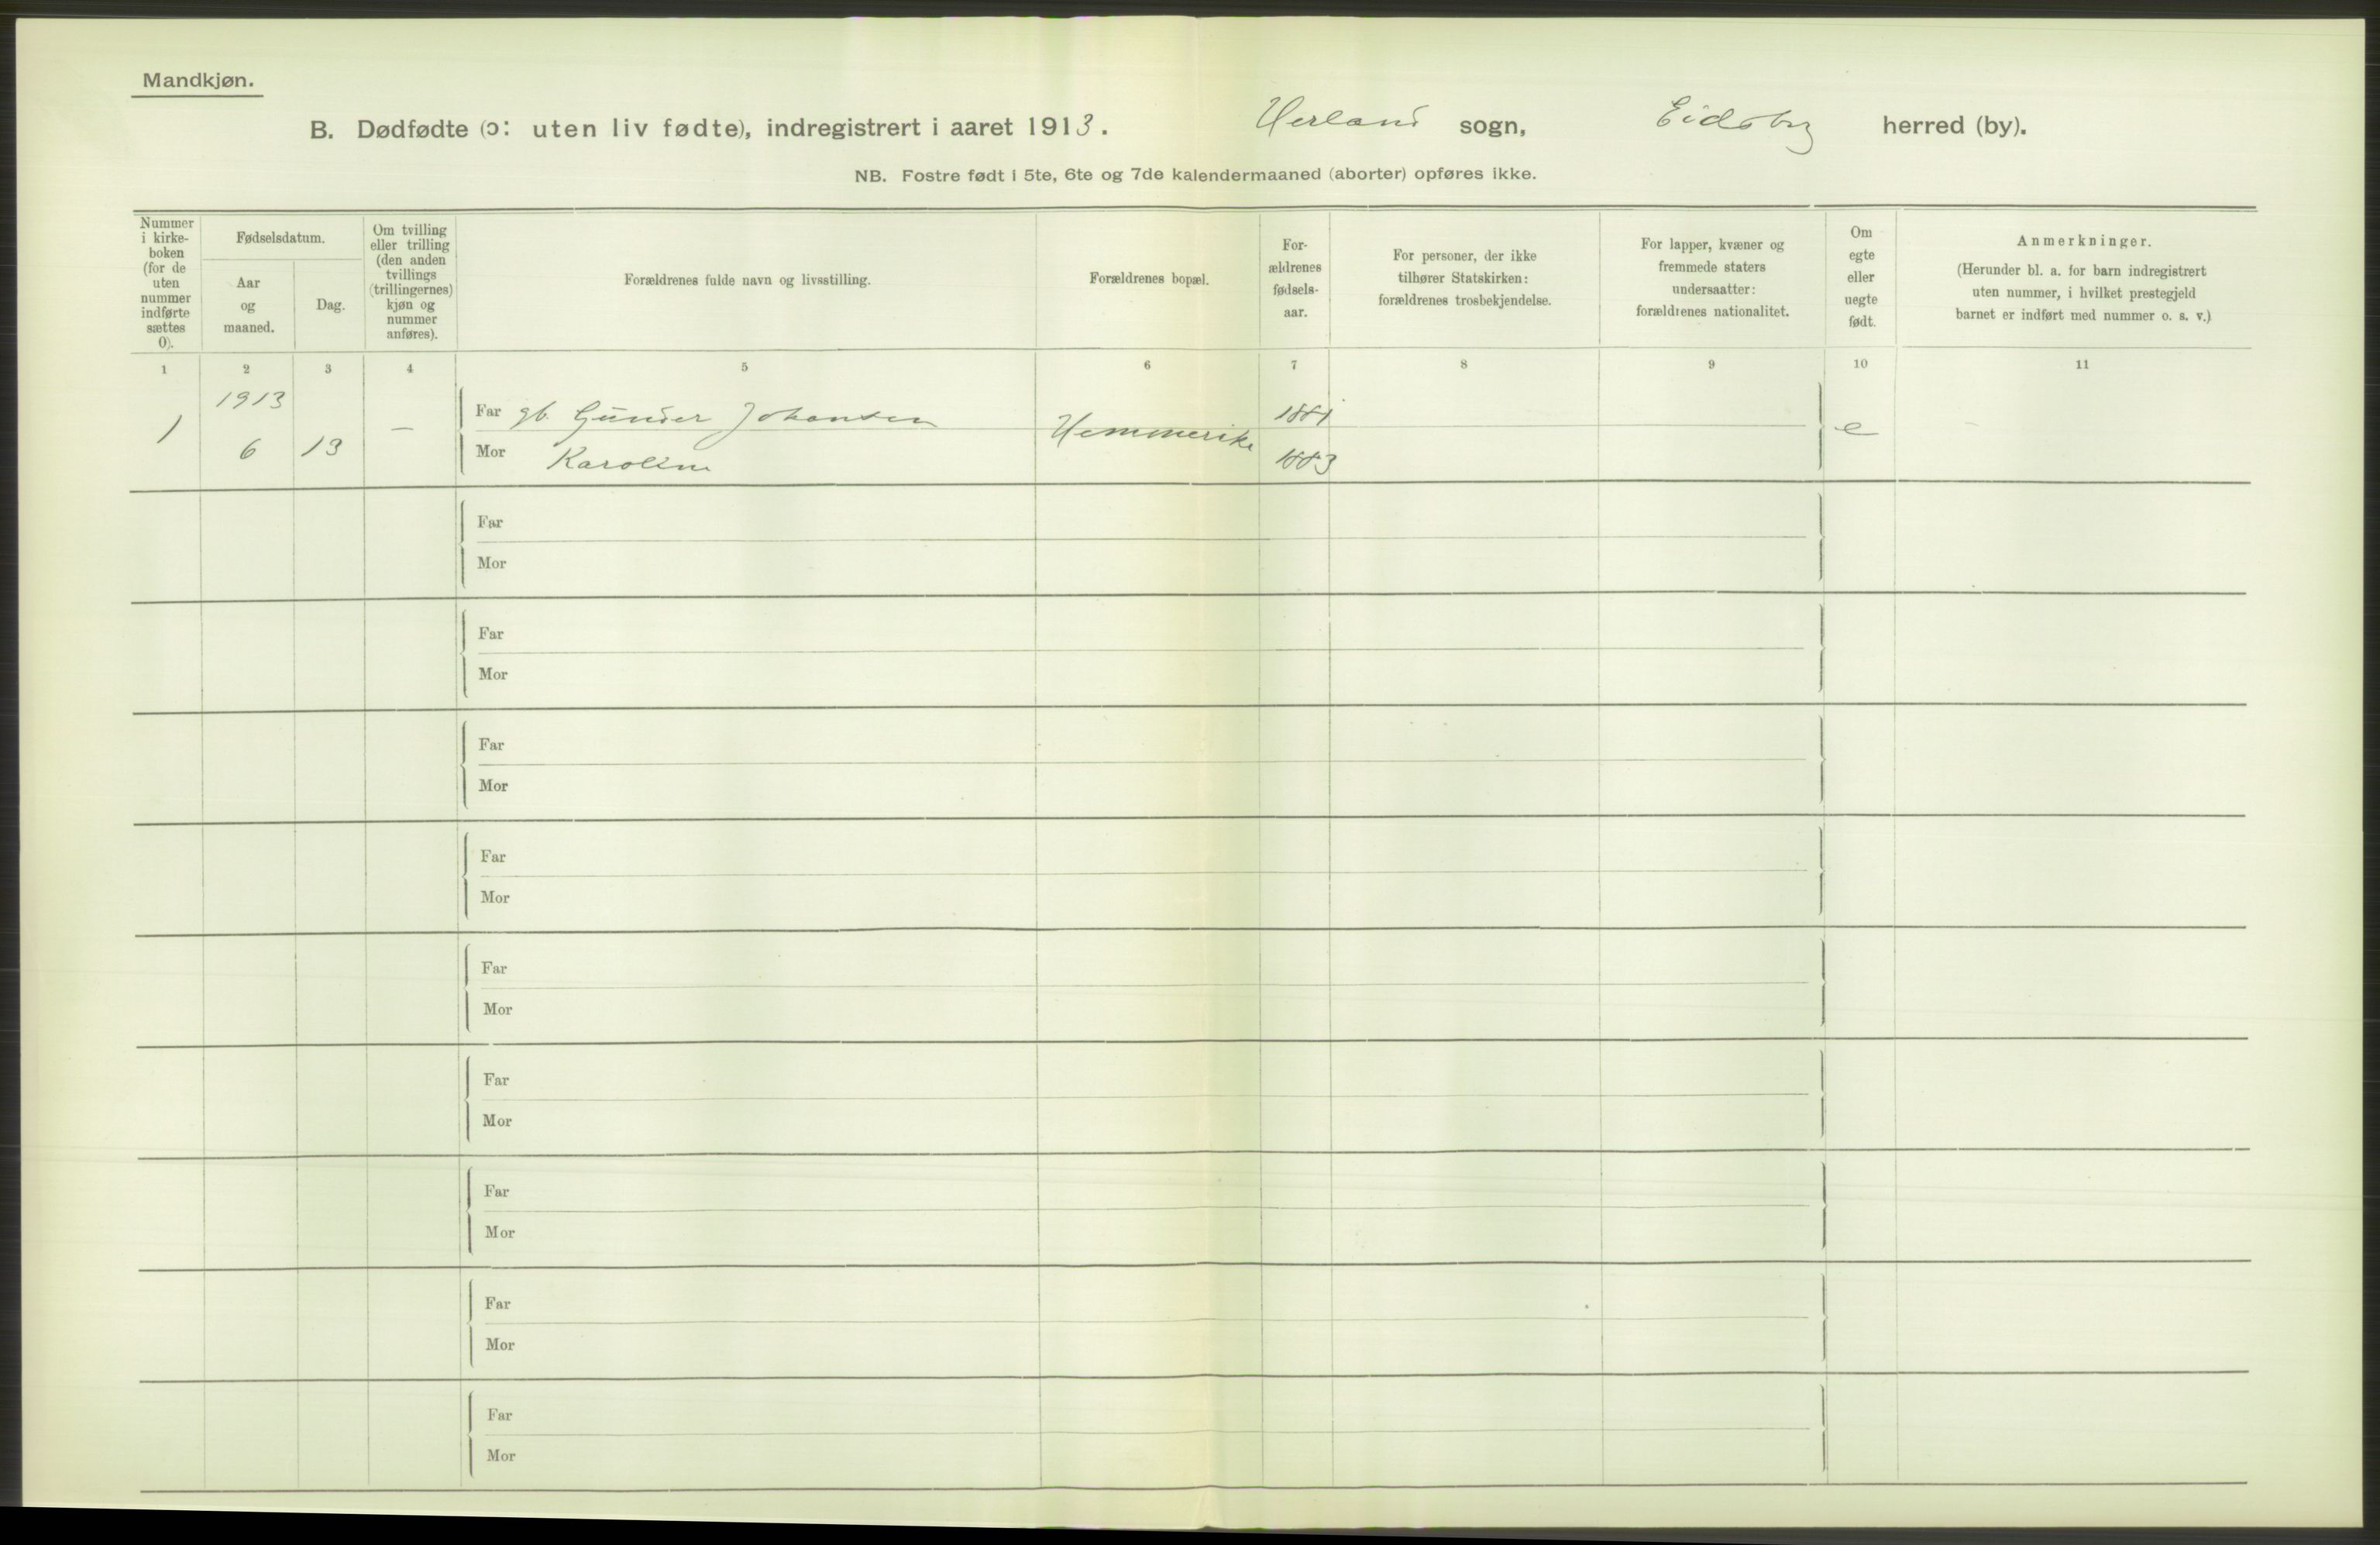 Mandkjøn.
B. Dødfødte (ɔ: uten liv fødte), indregistrert i aaret 1913. Herland sogn, Eidsberg herred (by).
NB. Fostre født i 5te, 6te og 7de kalendermaaned (aborter) opføres ikke.
Nummer
i kirke-
boken
(for de
uten
nummer
indførte
sættes
0).
Fødselsdatum.
Aar
og
maaned.
Dag.
Om tvilling
eller trilling
(den anden
tvillings
(trillingernes)
kjøn og
nummer
anføres).
Forældrenes fulde navn og livsstilling.
Forældrenes bopæl.
For-
ældrenes
fødsels-
aar.
For personer, der ikke
tilhører Statskirken:
forældrenes trosbekjendelse.
For lapper, kvæner og
fremmede staters
undersaatter:
forældrenes nationalitet.
Om
egte
eller
uegte
født.
Anmerkninger.
(Herunder bl. a. for barn indregistrert
uten nummer, i hvilket prestegjeld
barnet er indført med nummer o. s. v.)
1 2 3 4 5 6 7 8 9 10 11
1913
1 6 13 —
Far gb. Gunder Johansen
Mor Karoline
Hemmerike
1881
1883
e
Far
Mor
Far
Mor
Far
Mor
Far
Mor
Far
Mor
Far
Mor
Far
Mor
Far
Mor
Far
Mor